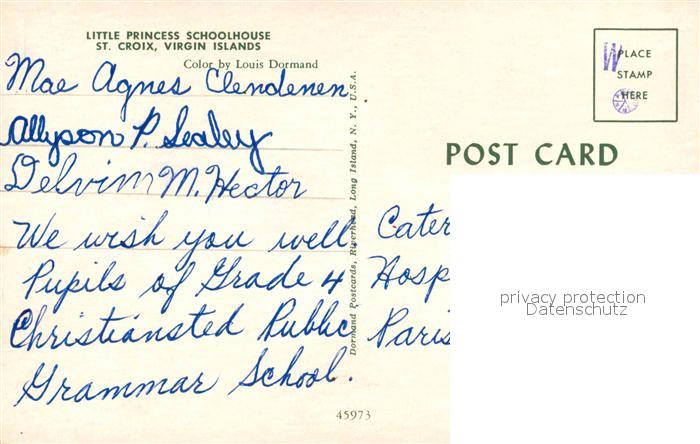 LITTLE PRINCESS SCHOOLHOUSE
ST. CROIX, VIRGIN ISLANDS
Color by Louis Dormand
Mae Agnes Clendenen
Allyson P. Sealey
Delvin M. Hector
We wish you well
Pupils of Grade 4
Christiansted Public
Grammar School.
Dormand Postcards, Riverhead, Long Island, N. Y., U.S.A.
45973
PLACE
STAMP
HERE
POST CARD
Cater
Hosp
Paris
privacy protection
Datenschutz